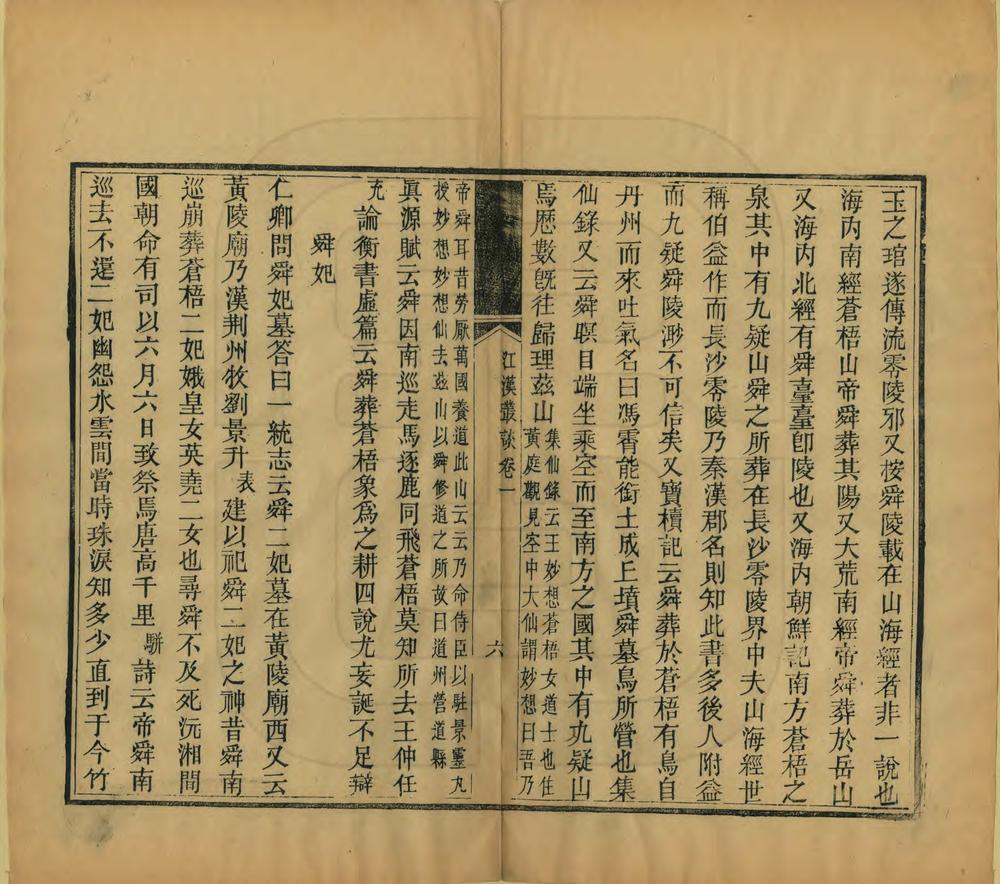 玉之琯遂傳流零陵邪又按舜陵載在山海經者非一說也
海內南經蒼梧山帝舜葬其陽又大荒南經帝舜葬於岳山
又海內北經有舜臺臺卽陵也又海內朝鮮記南方蒼梧之
泉其中有九疑山舜之所葬在長沙零陵界中夫山海經世
稱伯益作而長沙零陵乃秦漢郡名則知此書多後人附益
而九疑舜陵渺不可信矣又寶櫝記云舜葬於蒼梧有鳥自
丹州而來吐氣名曰馮霄能銜土成上墳舜墓鳥所營也集
仙錄又云舜瞑目端坐乘空而至南方之國其中有九疑山
焉歴數旣往歸理茲山集仙錄云王妙想蒼梧女道士也住
黃庭觀見空中大仙謂妙想曰吾乃
江漢叢談卷一
六
帝舜耳昔勞厭萬國養道此山云云乃命侍臣以駐景靈丸
授妙想妙想仙去茲山以舜修道之所故曰道州營道縣
眞源賦云舜因南巡走馬逐鹿同飛蒼梧莫知所去王仲任
充論衡書虛篇云舜葬蒼梧象爲之耕四說尤妄誕不足辯
舜妃
仁卿問舜妃墓答曰一統志云舜二妃墓在黃陵廟西又云
黃陵廟乃漢荆州牧劉景升表建以祀舜二妃之神昔舜南
巡崩葬蒼梧二妃娥皇女英堯二女也尋舜不及死沅湘間
國朝命有司以六月六日致祭焉唐高千里駢詩云帝舜南
巡去不還二妃幽怨水雲間當時珠淚知多少直到于今竹